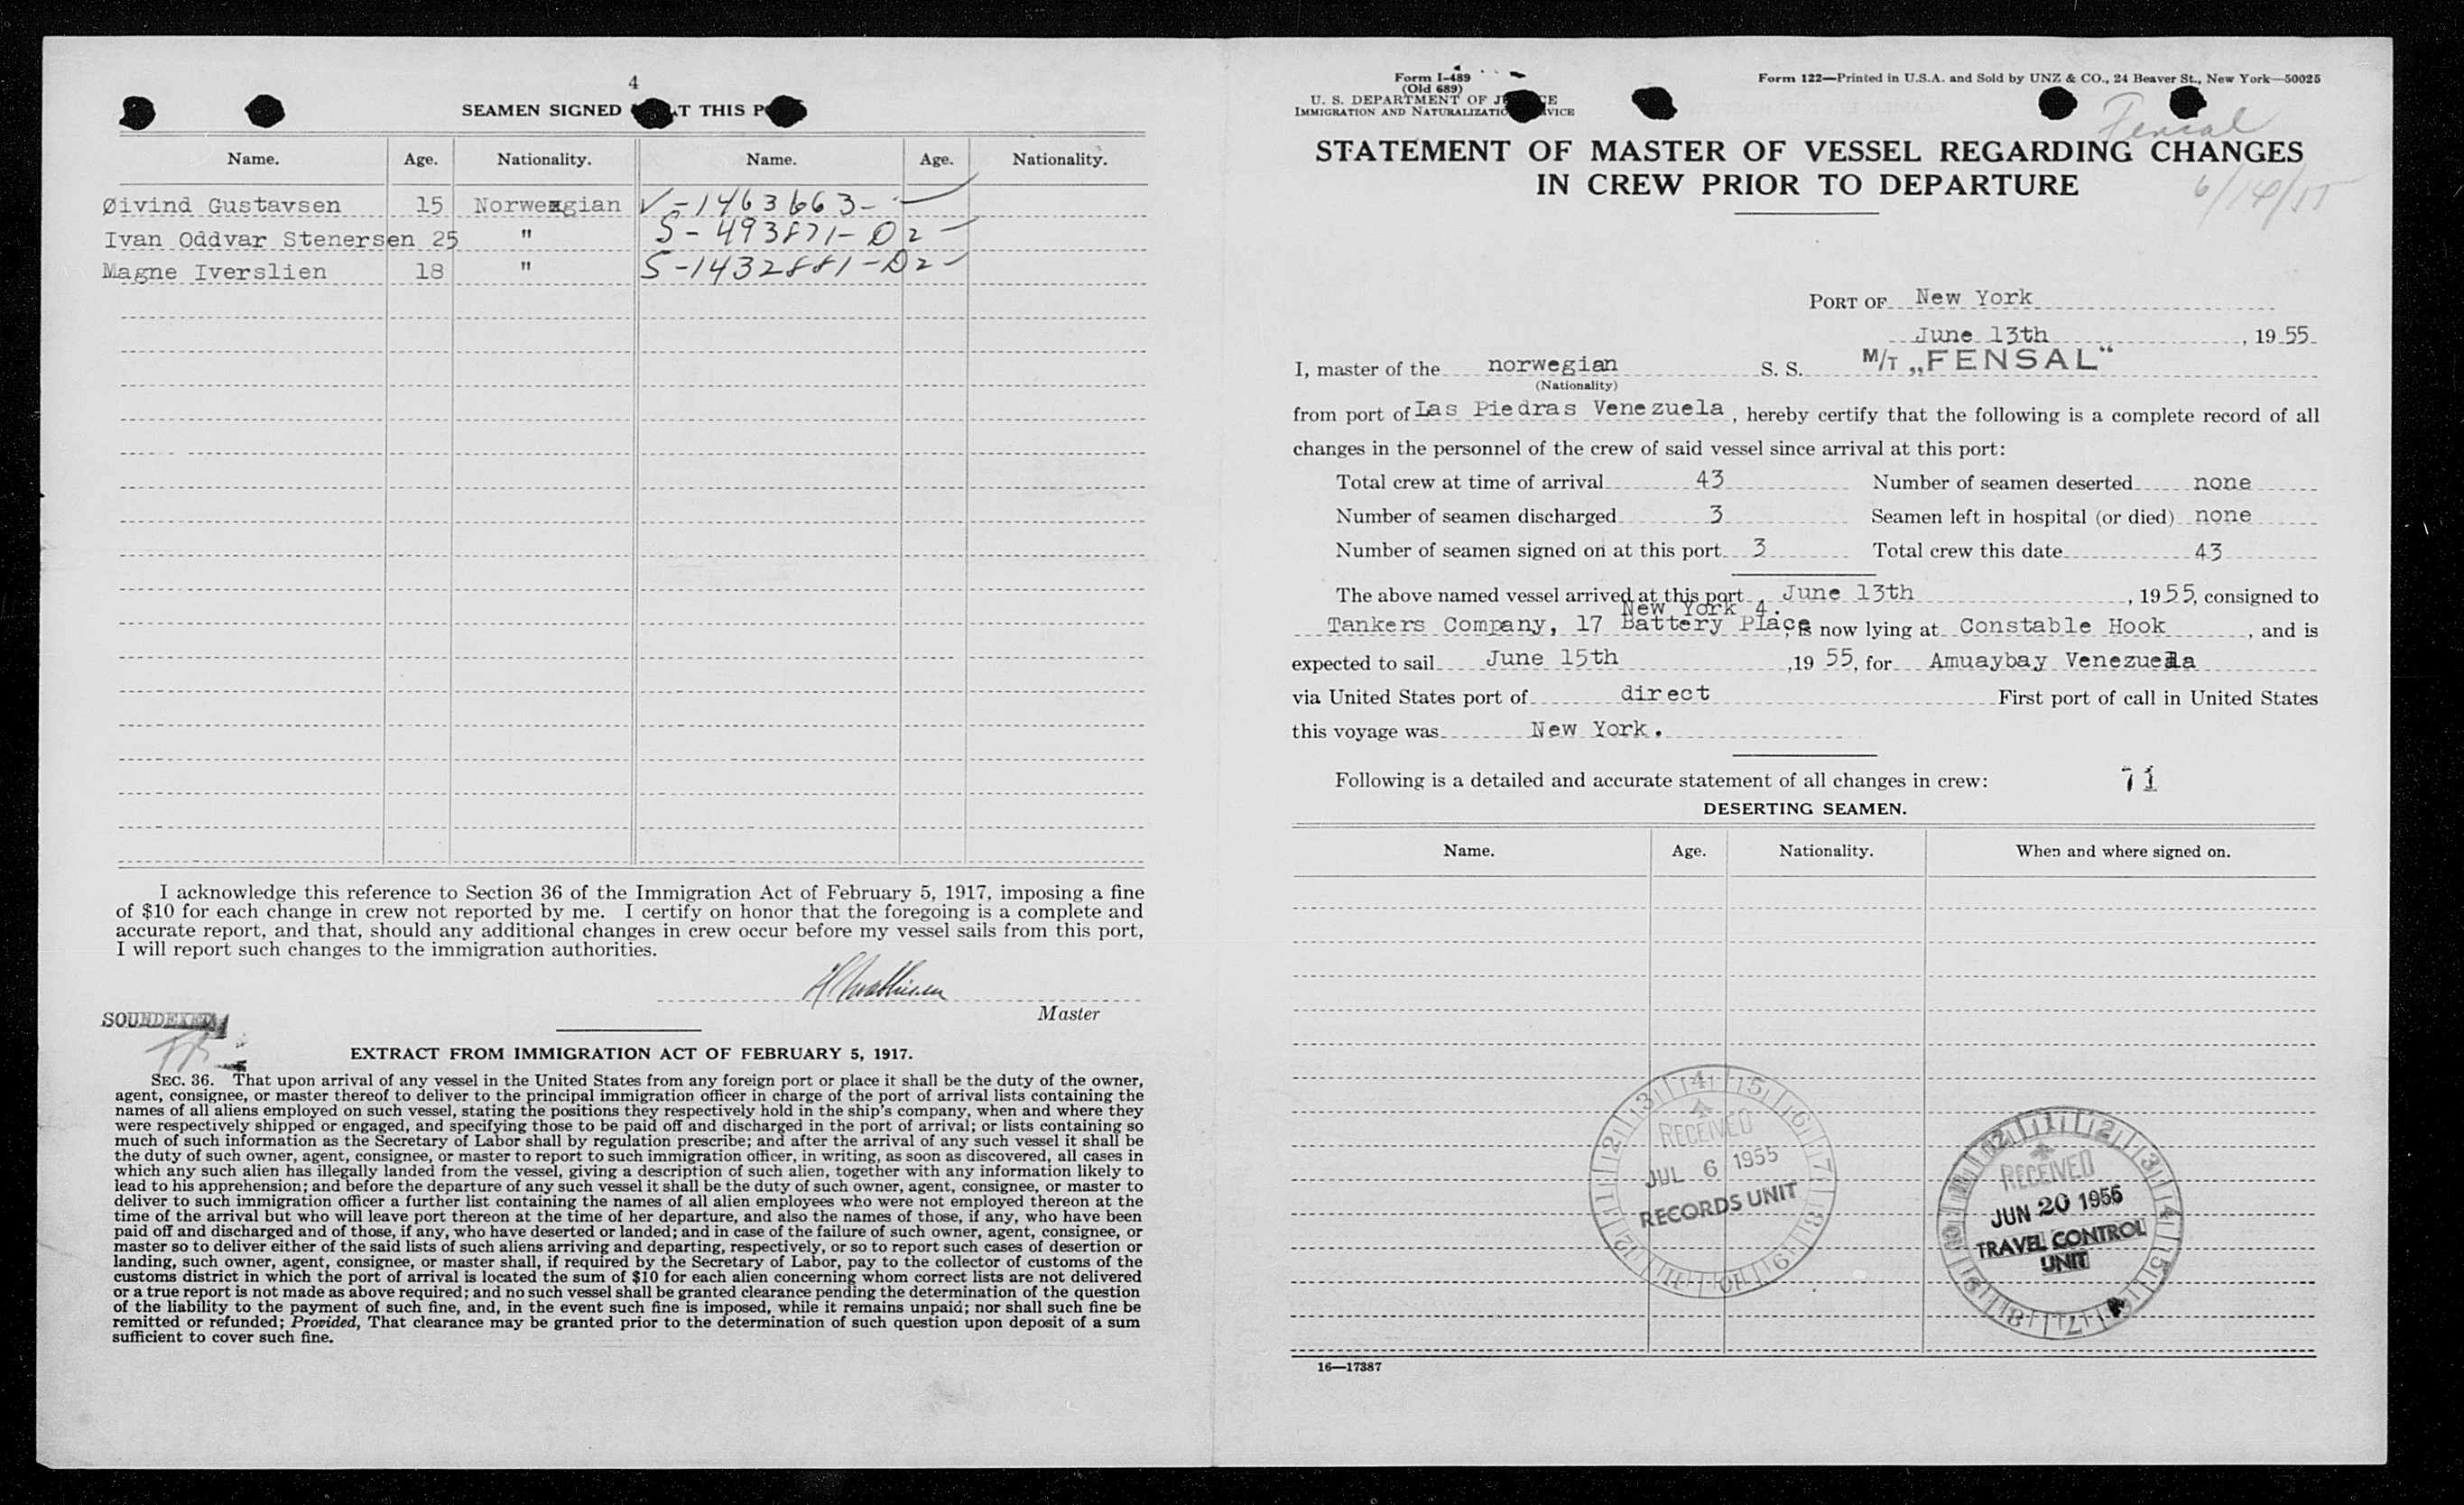 4
SEAMEN SIGNED AT THIS P
Name. Age. Nationality. Name. Age. Nationality.
Øivind Gustavsen 15 Norwegian V-1463663-
Ivan Oddvar Stenersen 25 " S-493871-D2
Magne Iverslien 18 " S-1432881-D2
I acknowledge this reference to Section 36 of the Immigration Act of February 5, 1917, imposing a fine
of $10 for each change in crew not reported by me. I certify on honor that the foregoing is a complete and
accurate report, and that, should any additional changes in crew occur before my vessel sails from this port,
I will report such changes to the immigration authorities.
Master
SOUNDEXED
EXTRACT FROM IMMIGRATION ACT OF FEBRUARY 5, 1917.
SEC. 36. That upon arrival of any vessel in the United States from any foreign port or place it shall be the duty of the owner,
agent, consignee, or master thereof to deliver to the principal immigration officer in charge of the port of arrival lists containing the
names of all aliens employed on such vessel, stating the positions they respectively hold in the ship's company, when and where they
were respectively shipped or engaged, and specifying those to be paid off and discharged in the port of arrival; or lists containing so
much of such information as the Secretary of Labor shall by regulation prescribe; and after the arrival of any such vessel it shall be
the duty of such owner, agent, consignee, or master to report to such immigration officer, in writing, as soon as discovered, all cases in
which any such alien has illegally landed from the vessel, giving a description of such alien, together with any information likely to
lead to his apprehension; and before the departure of any such vessel it shall be the duty of such owner, agent, consignee, or master to
deliver to such immigration officer a further list containing the names of all alien employees who were not employed thereon at the
time of the arrival but who will leave port thereon at the time of her departure, and also the names of those, if any, who have been
paid off and discharged and of those, if any, who have deserted or landed; and in case of the failure of such owner, agent, consignee, or
master so to deliver either of the said lists of such aliens arriving and departing, respectively, or so to report such cases of desertion or
landing, such owner, agent, consignee, or master shall, if required by the Secretary of Labor, pay to the collector of customs of the
customs district in which the port of arrival is located the sum of $10 for each alien concerning whom correct lists are not delivered
or a true report is not made as above required; and no such vessel shall be granted clearance pending the determination of the question
of the liability to the payment of such fine, and, in the event such fine is imposed, while it remains unpaid; nor shall such fine be
remitted or refunded; Provided, That clearance may be granted prior to the determination of such question upon deposit of a sum
sufficient to cover such fine.
Form I-489
(Old 689)
U. S. DEPARTMENT OF JUSTICE
IMMIGRATION AND NATURALIZATION SERVICE
Form 122—Printed in U.S.A. and Sold by UNZ & CO., 24 Beaver St., New York—50025
Fensal
STATEMENT OF MASTER OF VESSEL REGARDING CHANGES
IN CREW PRIOR TO DEPARTURE
6/14/55
PORT OF New York
June 13th, 1955
I, master of the norwegian S. S. M/T „FENSAL"
(Nationality)
from port of Las Piedras Venezuela, hereby certify that the following is a complete record of all
changes in the personnel of the crew of said vessel since arrival at this port:
Total crew at time of arrival 43 Number of seamen deserted none
Number of seamen discharged 3 Seamen left in hospital (or died) none
Number of seamen signed on at this port 3 Total crew this date 43
The above named vessel arrived at this port June 13th, 1955, consigned to
New York 4.
Tankers Company, 17 Battery Place, is now lying at Constable Hook, and is
expected to sail June 15th, 19 55, for Amuaybay Venezuela
via United States port of direct First port of call in United States
this voyage was New York.
Following is a detailed and accurate statement of all changes in crew: 71
DESERTING SEAMEN.
Name. Age. Nationality. When and where signed on.
RECEIVED
JUL 6 1955
RECORDS UNIT
RECEIVED
JUN 20 1955
TRAVEL CONTROL
UNIT
16—17387